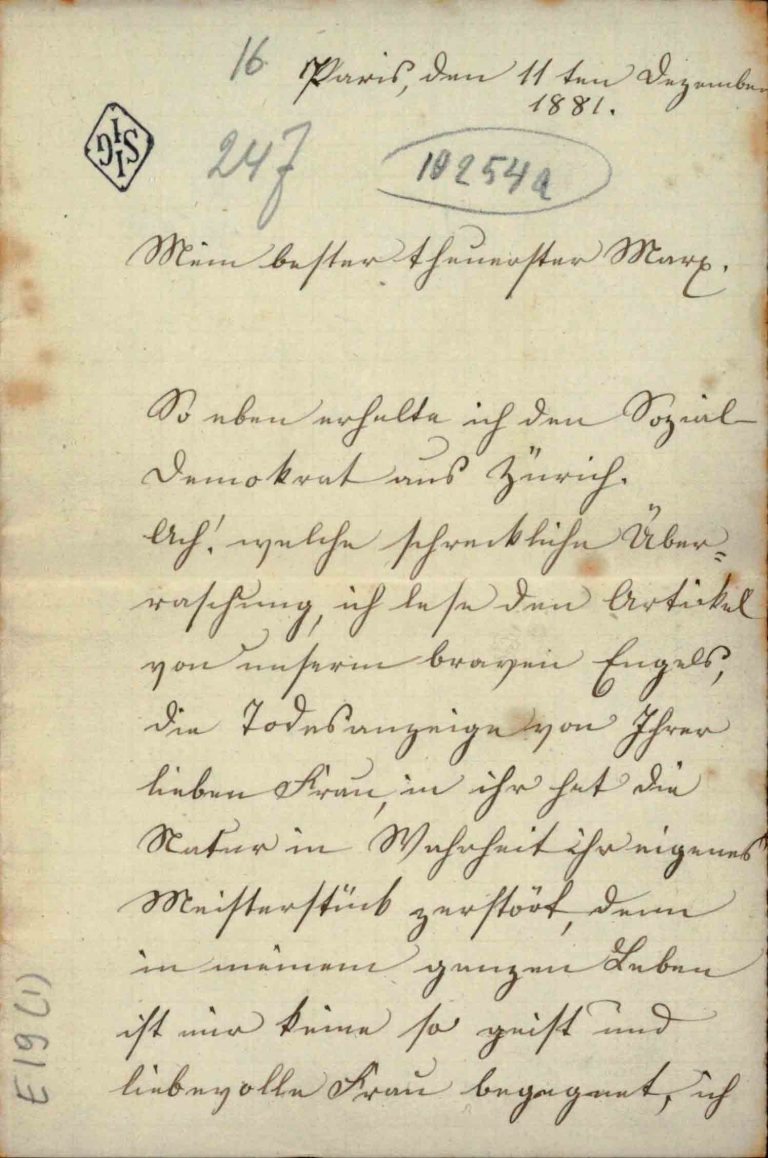 16
Paris, den 11 ten Dezember
1881.
IISG
247
10254a
Mein bester theuerster Marx.
So eben erhalte ich den Sozial-
Demokrat aus Zürich.
Ach! welche schreckliche Über-
raschung, ich lese den Artickel
von unserm braven Engels,
die Todesanzeige von Ihrer
lieben Frau, in ihr hat die
Natur in Wahrheit ihr eigenes
Meisterstück zerstört, denn
in meinem ganzen Leben
ist mir keine so geist und
liebevolle Frau begegnet, ich
E19(1)